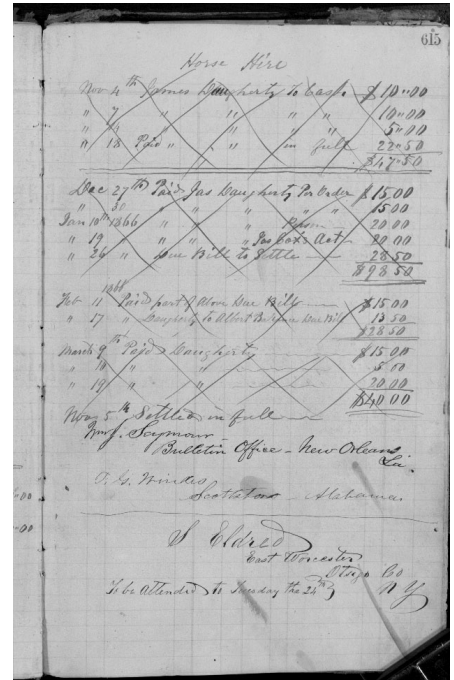 615
Horse Hire
Nov 4th James Daugherty To Cash $10"00
" 7 " " " " 10"00
" 14 " " " " 5"00
" 18 Paid " " in full 22"50
$47"50
Dec 27th Paid Jas Daugherty Per Order $15.00
" 30 " " " " 15.00
Jan 10th 1866 " " 20.00
" 19 " " Jas Cox's Act 20.00
" 26 " Due Bill to Settle 28.50
$98.50
1866
Feb 11 Paid part of Above Due Bill $15.00
" 17 " Daugherty to Albert Due Bill 13.50
$28.50
March 9th Paid Daugherty $15.00
" 10 " " 5.00
" 19 " " 20.00
$40.00
5th Settled in full
Wm J. Seymour
Bulletin Office - New Orleans
La.
O. G.
Alabama
S Eldred
East Worcester
Otsego Co
To be Attended to Tuesday the 24th N Y
"00
"00